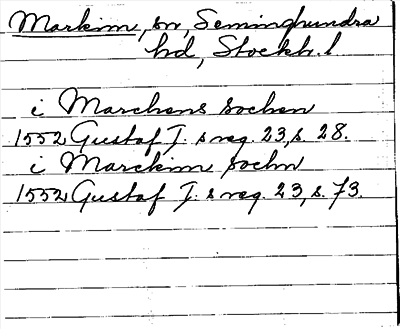 Markim, sn, Seminghundra
hd, Stockh. l
i Marchens sochen
1552 Gustaf I. s reg. 23, s. 28.
i Marckim sochn
1552 Gustaf I. s reg. 23, s. 73.